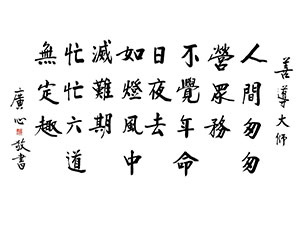 善導大师
人間匆匆
營眾務
不覺年命
日夜去
如燈風中
滅難期
忙忙六道
無定趣
廣心敬書